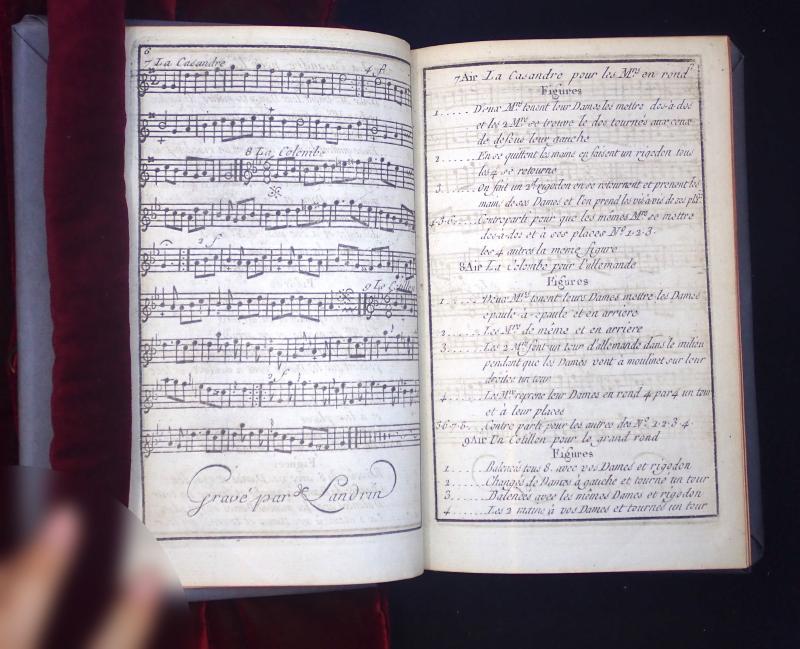 6
7 La Casandre
4 f
8 La Colombe
2 f
9 Le Cotillon
2 f
Gravé par Landrin
7 Air La Casandre pour les Mrs en rond
Figures
1......Deux Mrs tenent leur Dames les mettre dos-à-dos
et les 2 Mrs se trouve le dos tournés aux ceux
de desous leur gauche
2......En se quittent les mains en faisent un rigodon tous
les 4 se retourne
3......On fait un 2d rigodon en se retournent et prenent les
mains de ses Dames et l'on prend les vis a vis de ses plss
4·5·6·...Contreparti pour que les mêmes Mrs se mettre
dos-à-dos et à ses places No 1·2·3·
les 4 autres la meme figure
8 Air La Colombe pour l'allemande
Figures
1......Deux Mrs tenent leurs Dames mettre les Dames
epaule-à-epaule et en arriere
2......Les Mrs de même et en arriere
3......Les 2 Mrs font un tour d'allemande dans le milieu
pendant que les Dames vont à moulinet sur leur
droites un tour
4......Les Mrs reprene leur Dames en rond 4 par 4 un tour
et à leur places
5·6·7·8·...Contre parti pour les autres des No 1·2·3·4·
9 Air Un Cotillon pour le grand rond
Figures
1......Balencés tous 8. avec vos Dames et rigodon
2......Changés de Dames à gauche et tourné un tour
3......Balencés aves les mêmes Dames et rigodon
4......Les 2 mains à vos Dames et tournés un tour